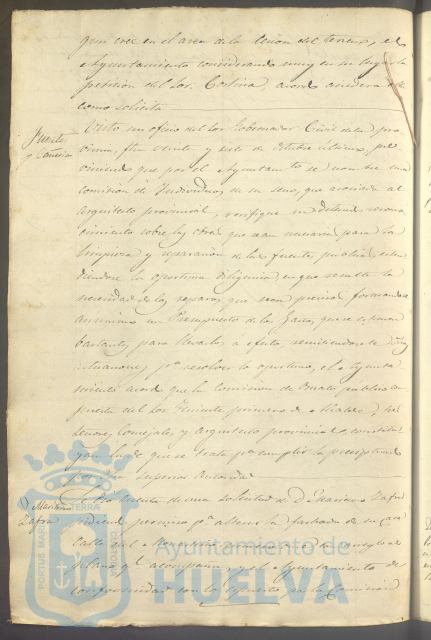 que cree en el area de la union del terreno, el
Ayuntamiento considerando muy en su lugar la
peticion del Sor. Cortina, acordó acceder
como solicita
Fuente
y Comision
Visto un oficio del Sor Gobernador Civil de la pro
vincia, fha veinte y siete de Octubre ultimo, pre
viniendo que por el Ayuntamto se nombre una
comision de Individuos de su seno, que asociada al
arquitecto provincial, verifique un detenido recono
cimiento sobre las obras que sean necesarias para la
limpieza y reparacion de la fuente publica, esten
diendose la oportuna diligencia en que resulte la
necesidad de los reparos que sean precisos formandose
asimismo un Presupuesto de los gastos que se estimen
bastantes para llevarlos á efecto, remitiendose
actuaciones, pa resolver lo oportuno, el Ayunta
miento acordó que la Comision de Ornato publico com
puesta del Sor Teniente primero de Alcalde,
Concejales y Arquitecto provincial, constitu
yan luego que se trate pa cumplir lo preceptuado
por la Superior Autoridad
D. Mariano
Zafra
Se dió cuenta de una solicitud de D. Mariano Zafra
pidiendo permiso pa alterar la fachada de su casa
calle del Monasterio con arreglo
plano qe acompaña, y el Ayuntamiento de
conformidad con lo espuesto por la Comision
PORTUS MARIS ET TERRÆ CUSTODIA
Ayuntamiento de
HUELVA